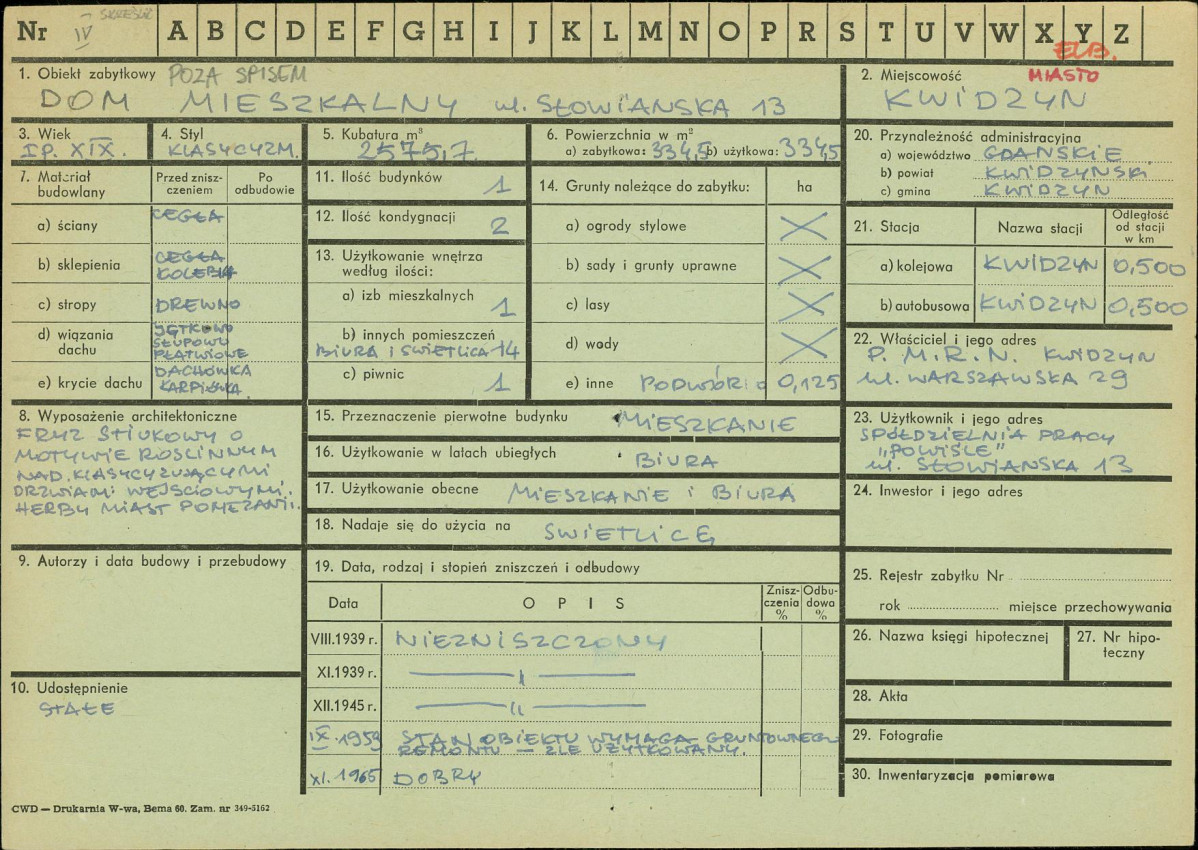 Nr IV SKREŚLIĆ A B C D E F G H I J K L M N O P R S T U V W X Y Z
ELB.
1. Obiekt zabytkowy POZA SPISEM
DOM MIESZKALNY ul. SŁOWIAŃSKA 13
2. Miejscowość MIASTO
KWIDZYN
3. Wiek
I P. XIX.
4. Styl
KLASYCYZM.
5. Kubatura m³
2575,7.
6. Powierzchnia w m²
a) zabytkowa: 334,5 b) użytkowa: 334,5
20. Przynależność administracyjna
a) województwo GDAŃSKIE
b) powiat KWIDZYŃSKI
c) gmina KWIDZYN
7. Materiał budowlany
Przed znisz-
czeniem
Po
odbudowie
a) ściany CEGŁA
b) sklepienia CEGŁA
KOLEBKA
c) stropy DREWNO
d) wiązania
dachu
JĘTKOWO
SŁUPOWO
PŁATWIOWE
e) krycie dachu DACHÓWKA
KARPIÓWKA.
11. Ilość budynków 1
12. Ilość kondygnacji 2
13. Użytkowanie wnętrza
według ilości:
a) izb mieszkalnych 1
b) innych pomieszczeń
BIURA I ŚWIETLICA 14
c) piwnic 1
14. Grunty należące do zabytku: ha
a) ogrody stylowe
b) sady i grunty uprawne
c) lasy
d) wody
e) inne PODWÓRKO 0,125
21. Stacja Nazwa stacji
Odległość
od stacji
w km
a) kolejowa KWIDZYN 0,500
b) autobusowa KWIDZYN 0,500
22. Właściciel i jego adres
P. M.R.N. KWIDZYN
ul. WARSZAWSKA 29
8. Wyposażenie architektoniczne
FRYZ STIUKOWY O
MOTYWIE ROŚLINNYM
NAD KLASYCYZUJĄCYMI
DRZWIAMI WEJŚCIOWYMI.
HERBY MIAST POMEZANII.
15. Przeznaczenie pierwotne budynku MIESZKANIE
16. Użytkowanie w latach ubiegłych BIURA
17. Użytkowanie obecne MIESZKANIE i BIURA
18. Nadaje się do użycia na ŚWIETLICĘ
23. Użytkownik i jego adres
SPÓŁDZIELNIA PRACY
„POWIŚLE"
ul. SŁOWIAŃSKA 13
24. Inwestor i jego adres
9. Autorzy i data budowy i przebudowy
19. Data, rodzaj i stopień zniszczeń i odbudowy
Data OPIS
Znisz-
czenia
%
Odbu-
dowa
%
VIII.1939 r. NIEZNISZCZONY
XI.1939 r. — " —
XII.1945 r. — " —
IX. 1959 STAN OBIEKTU WYMAGA GRUNTOWNEGO
REMONTU — ŹLE UŻYTKOWANY.
XI. 1965 DOBRY
25. Rejestr zabytku Nr
rok miejsce przechowywania
26. Nazwa księgi hipotecznej
27. Nr hipo-
teczny
10. Udostępnienie
STAŁE
28. Akta
29. Fotografie
30. Inwentaryzacja pomiarowa
CWD — Drukarnia W-wa, Bema 60. Zam. nr 349-5162